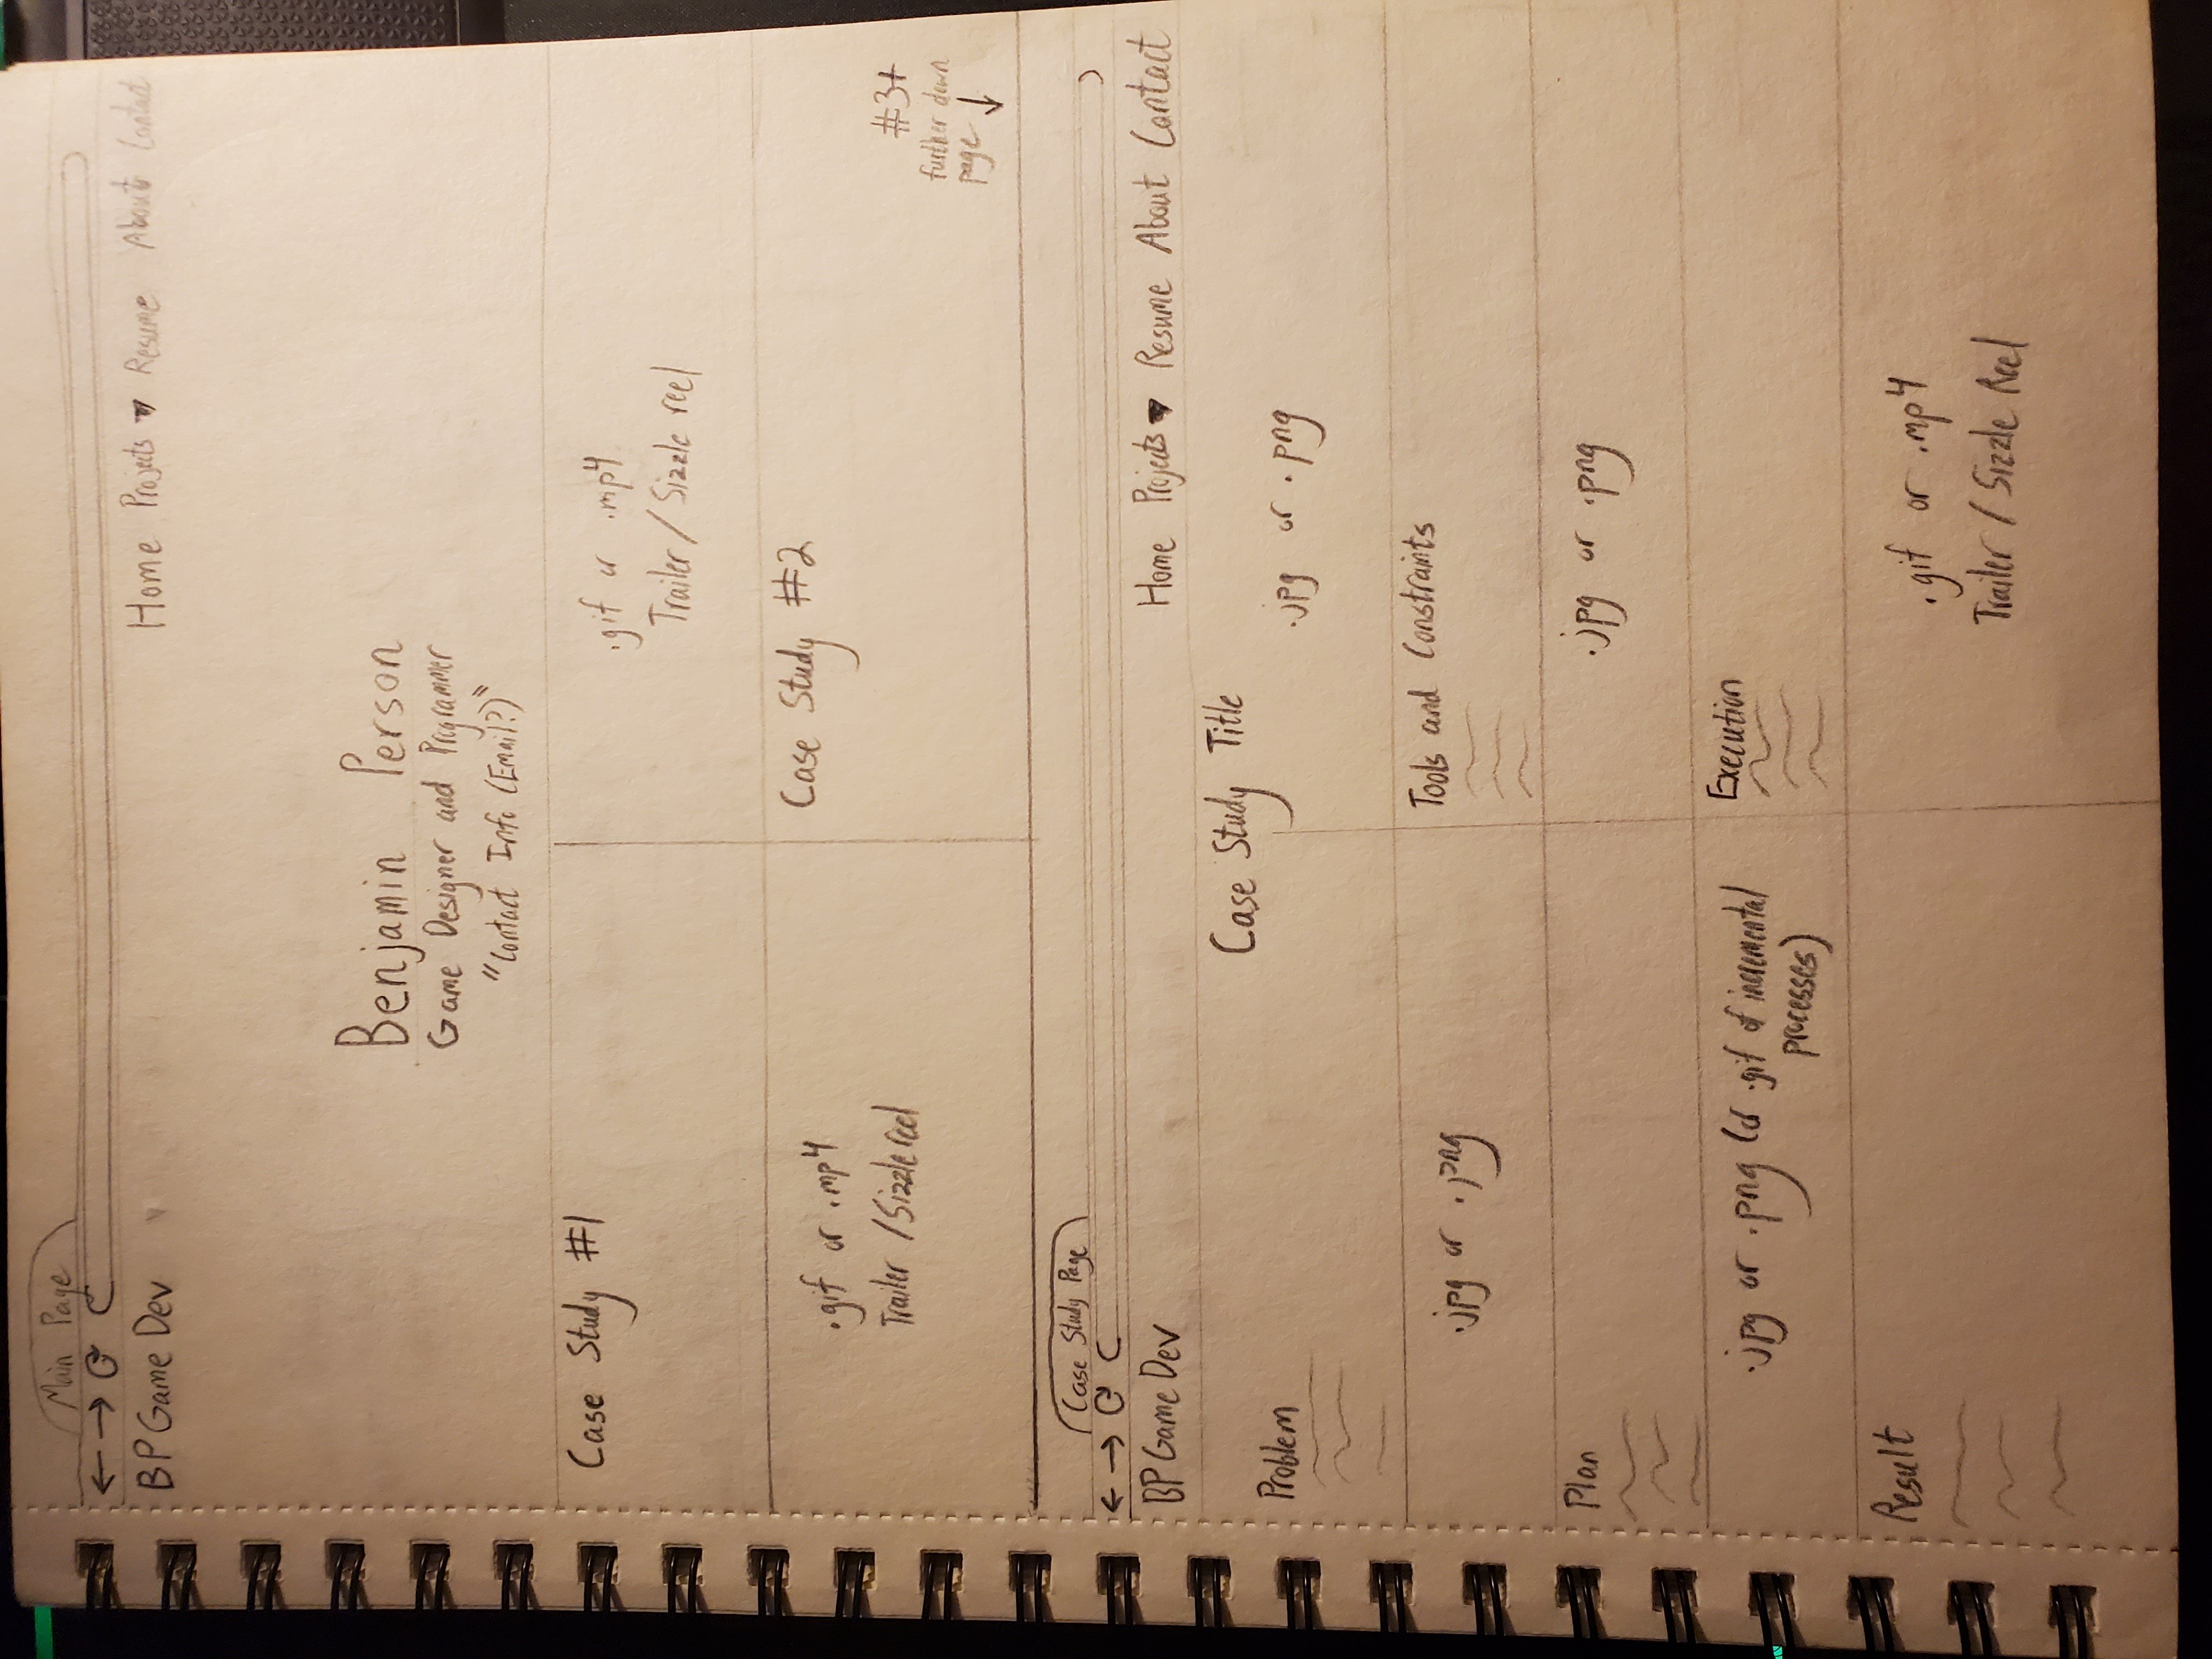 Main Page
BP Game Dev
Home Projects Resume About Contact
Benjamin Person
Game Designer and Programmer
"Contact Info (Email?)"
Case Study #1
.gif or .mp4
Trailer / Sizzle reel
.gif or .mp4
Trailer / Sizzle reel
Case Study #2
#3+
further down
page
Case Study Page
BP Game Dev
Home Projects Resume About Contact
Case Study Title
Problem
.jpg or .png
.jpg or .png
Tools and Constraints
Plan
.jpg or .png
.jpg or .png (or .gif of incremental
processes)
Execution
Result
.gif or .mp4
Trailer / Sizzle Reel